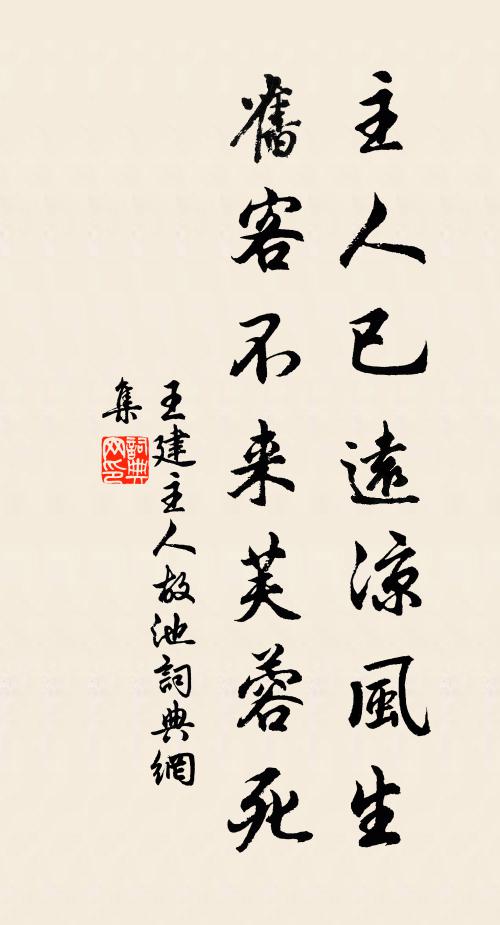 主人已遠涼風生
舊客不来芙蓉死
王建主人故池詞典網
集
詞典網印